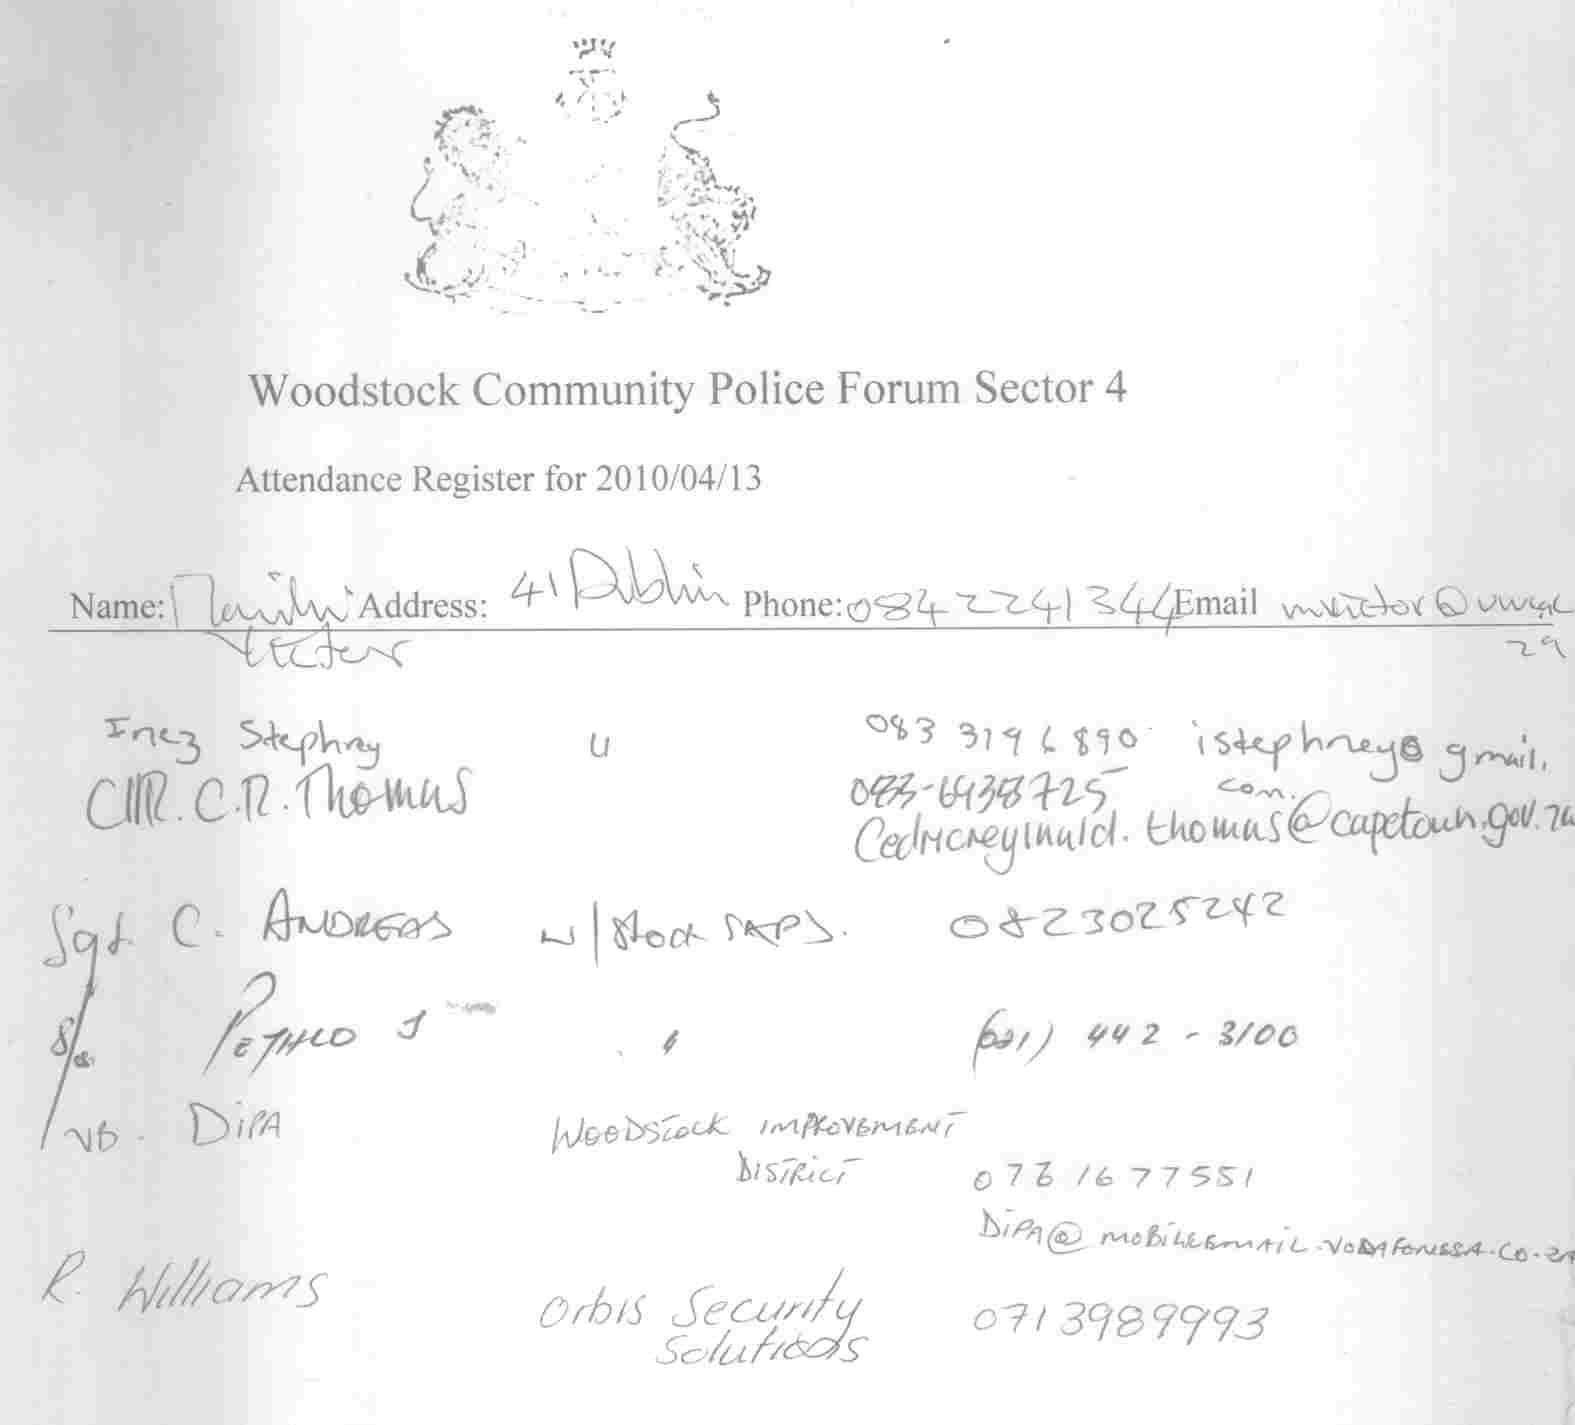 Woodstock Community Police Forum Sector 4
Attendance Register for 2010/04/13
Name: Address: 41 Dublin Phone: 0842241344 Email mvictor@uwc.ac
Victor za
Inez Stephney " 083 3196890 istephney@gmail.
com.
Cllr. C.R. Thomas 083-6938725
Cedricreyinald.thomas@capetown.gov.za
Sgt C. ANDREAS w/stock SAPS. 0823025242
J " (021) 442-3100
VB. DIPA WOODSTOCK IMPROVEMENT
DISTRICT 0761677551
DIPA@MOBILEEMAIL.VODAFONESA.CO.ZA
R. Williams Orbis Security 0713989993
Solutions